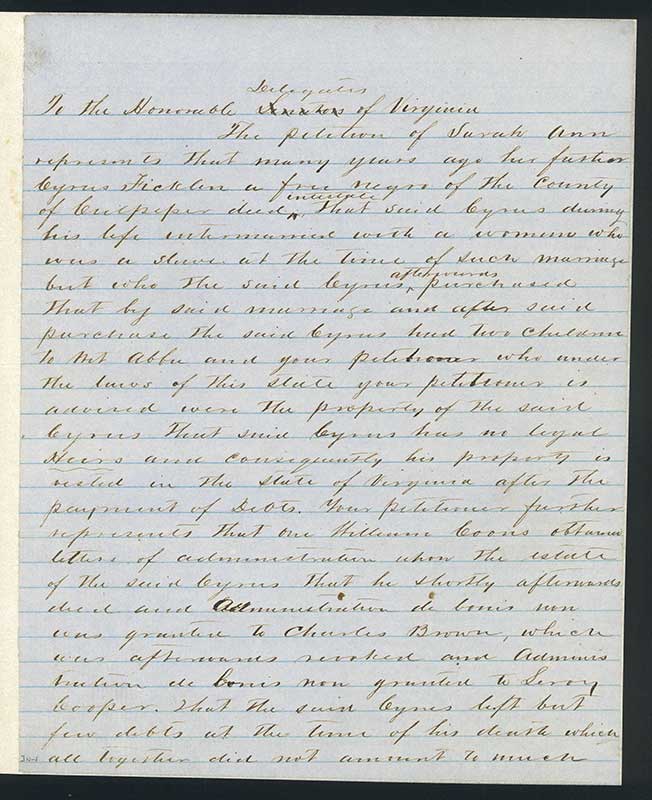 Delegates
To the Honorable Senators of Virginia
The petition of Sarah Ann
represents that many years ago her father
Cyrus Ficklin a free negro of the County
intestate
of Culpeper died, that said Cyrus during
his life intermarried with a woman who
was a slave at the time of such marriage
afterwards
but who the said Cyrus purchased
that by said marriage and after said
purchase the said Cyrus had two children
to wit Abbe and your petitioner who under
the laws of this state your petitioner is
advised were the property of the said
Cyrus that said Cyrus has no legal
Heirs and consequently his property is
vested in the state of Virginia after the
payment of Debts. Your petitioner further
represents that one William Coons obtained
letters of administration upon the estate
of the said Cyrus that he shortly afterwards
died and Administration de bonis non
was granted to Charles Brown, which
was afterwards revoked and Adminis
tration de bonis non granted to Leroy
Cooper. That the said Cyrus left but
few debts at the time of his death which
all together did not amount to much